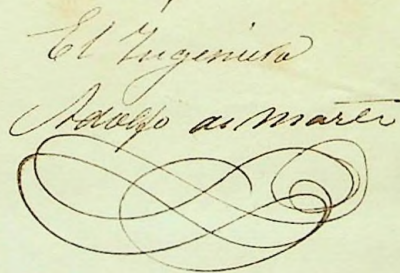 El Ingeniero
Adolfo de Marti